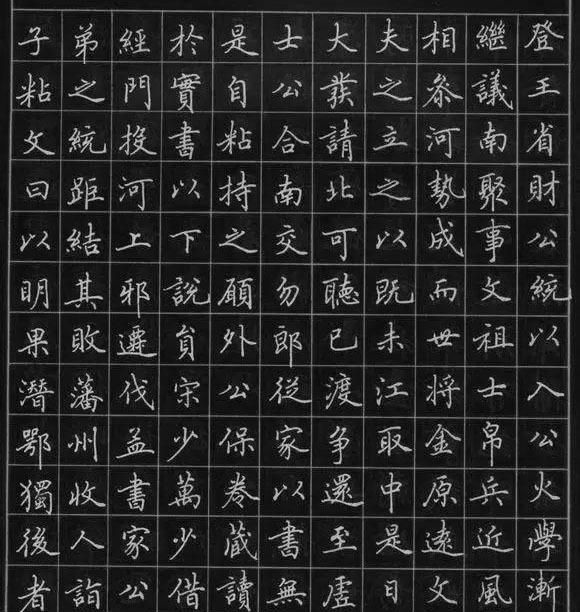 登王省財公統以入公火學漸
繼議南聚事文祖士帛兵近風
相參河勢成而世將金原遠文
夫之立之以既未江取中是日
大發請北可聽已渡爭還至虛
士公合南交勿郎從家以書無
是自粘持之願外公保卷藏讀
於實書以下說貟宋少萬少借
經門投河上邪遷伐益書家公
弟之統距結其敗藩州收人詣
子粘文曰以明果潛鄂獨後者